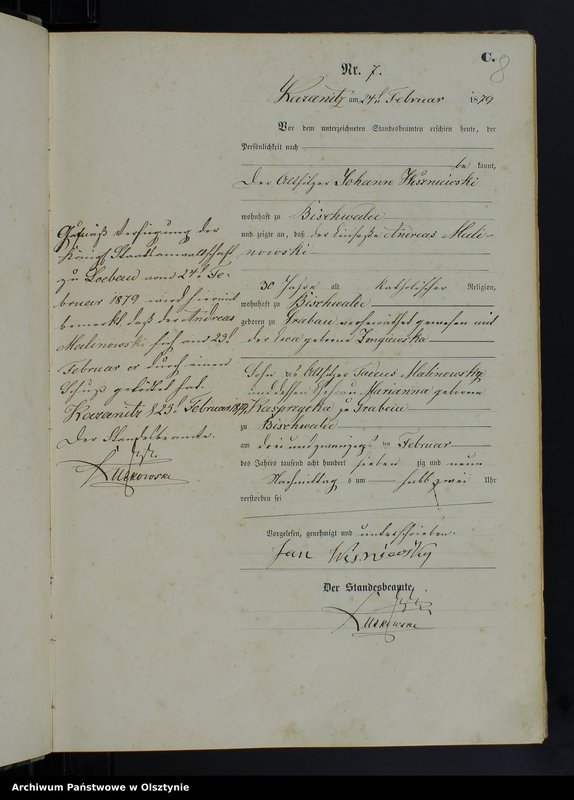 C.
8
Nr. 7.
Kazanitz am 24t Februar 1879
Vor dem unterzeichneten Standesbeamten erschien heute, der
Persönlichkeit nach
be kannt,
Der Altsitzer Johann Wiszniewski
wohnhaft zu Bischwalde
und zeigte an, daß der Einsaße Andreas Mali-
nowski
30 Jahre alt katholischer Religion,
wohnhaft zu Bischwalde
geboren zu Grabau verheirathet gewesen mit
der Eva geborene
Sohn des Altsitzer Tadeus Malinowsky
und dessen Ehefrau Marianna geborene
Kasprzycka zu Grabau
zu Bischwalde
am drei und zwanzigst ten Februar
des Jahres tausend acht hundert sieben zig und neun
Nachmittag s um halb zwei Uhr
verstorben sei
Vorgelesen, genehmigt und unterschrieben.
Jan Wisniewsky
Der Standesbeamte.
Lutkowski
Gemäß Verfügung der
Königl Staatsanwaltschaft
zu Loebau vom 24t Fe-
bruar 1879 wird hiermit
bemerkt, daß der Andreas
Malinowski sich am 23t
Februar cr durch einen
Schuß getödtet hat.
Kazanitz d 25t Februar 1879
Der Standesbeamte.
Lutkowski
Archiwum Państwowe w Olsztynie